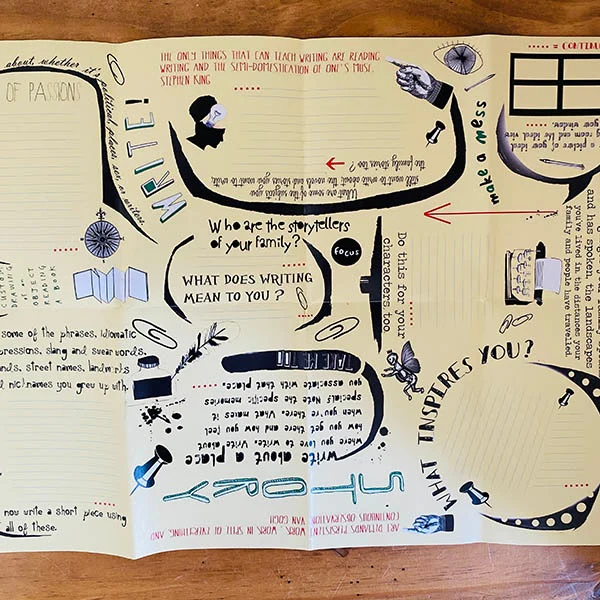 about, whether it's political, places, sex or writers.
OF PASSIONS
WRITE!
THE ONLY THINGS THAT CAN TEACH WRITING ARE READING
WRITING AND THE SEMI-DOMESTICATION OF ONE'S MUSE.
STEPHEN KING
What are some of the subjects you
still want to write about the novels and stories you want to write,
the family stories too?
make a mess
= CONTINU
your window.
Who are the storytellers
of your family?
FOCUS
WHAT DOES WRITING
MEAN TO YOU?
Do this for your
characters too
and has spoken, the landscapes
you've lived in the distances your
family and people have travelled
DRAWING
OBJECT
READING
A BOOK
some of the phrases, idiomatic
pressions, slang and swear words,
street names, landmarks
nicknames you grew up with.
now write a short piece using
all of these.
TAKE ME TO
write about a place
where you love to write. Write about
how you get there and how you feel
when you're there. What makes it
special? Note the specific memories
you associate with that place.
STORY
ART DEMANDS PERSISTENT WORK, WORK IN SPITE OF EVERYTHING, AND
CONTINUOUS OBSERVATION. VAN GOGH
WHAT INSPIRES YOU?